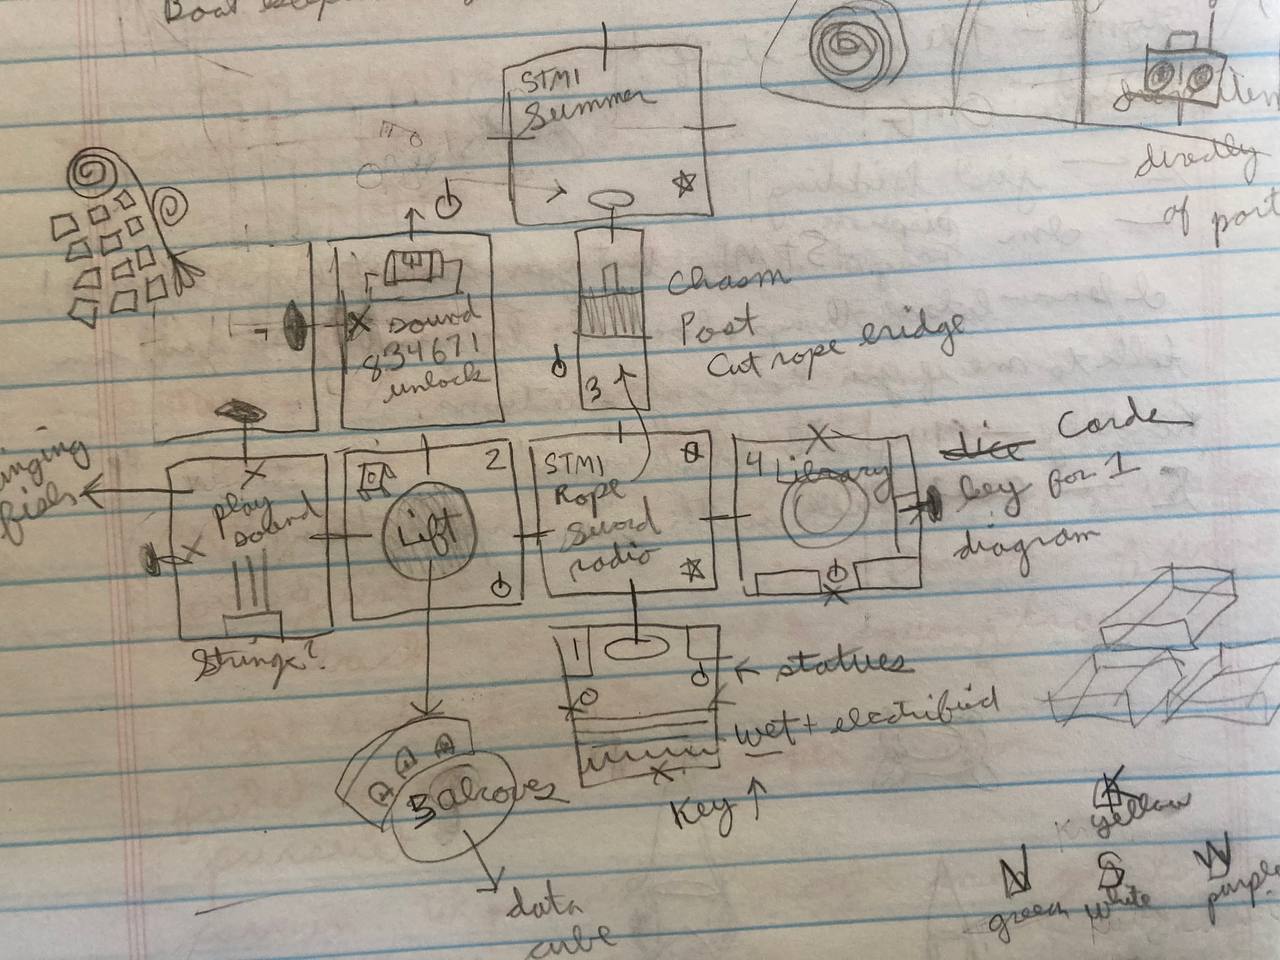 Boat
STM1
Summer
item
directly
of port
Chasm
Post
Cut rope bridge
3
sound
834671
unlock
inging
fish
play
sound
Strings?
2
Lift
STM1
Rope
Sword
radio
4
Library
dice Corde
key for 1
diagram
1
statues
wet + electrified
Key ↑
3 alcoves
data
cube
K
yellow
N
green
S
white
W
purple